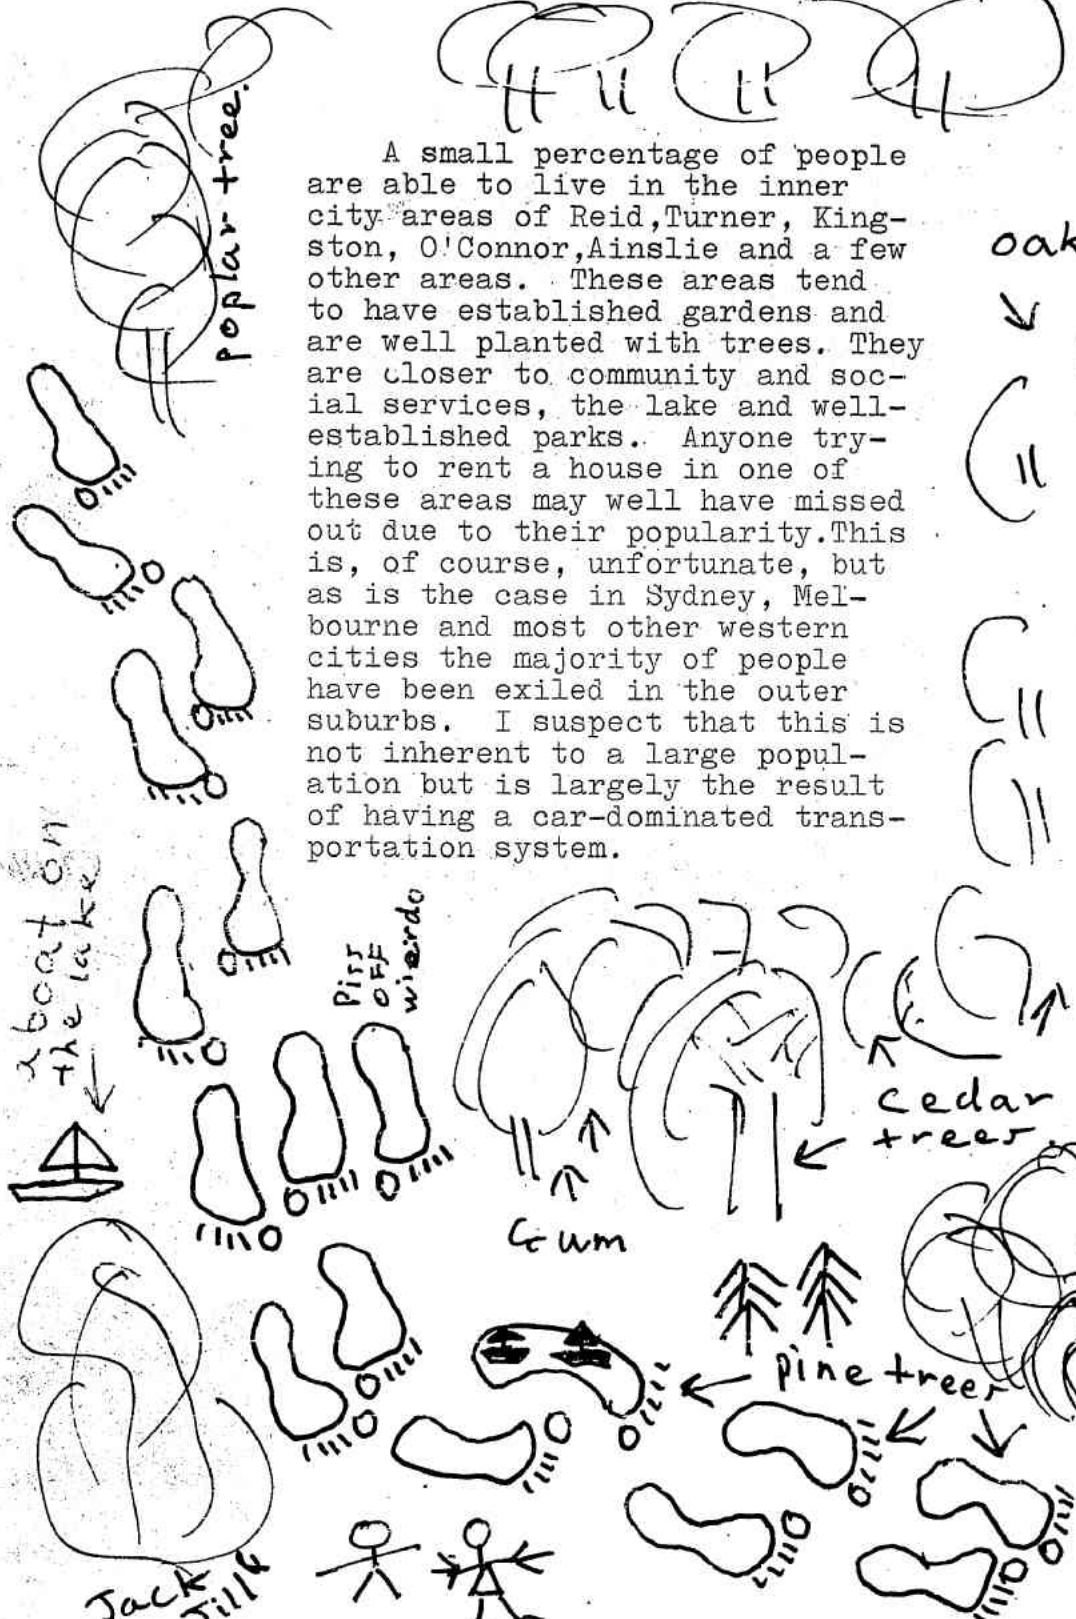 poplar tree.
A small percentage of people
are able to live in the inner
city areas of Reid,Turner, King-
ston, O'Connor,Ainslie and a few
other areas. These areas tend
to have established gardens and
are well planted with trees. They
are closer to community and soc-
ial services, the lake and well-
established parks. Anyone try-
ing to rent a house in one of
these areas may well have missed
out due to their popularity.This
is, of course, unfortunate, but
as is the case in Sydney, Mel-
bourne and most other western
cities the majority of people
have been exiled in the outer
suburbs. I suspect that this is
not inherent to a large popul-
ation but is largely the result
of having a car-dominated trans-
portation system.
oak
a boat on
the lake
Piss
OFF
wierdo
cedar
trees.
Gum
pine trees
Jack
Jill